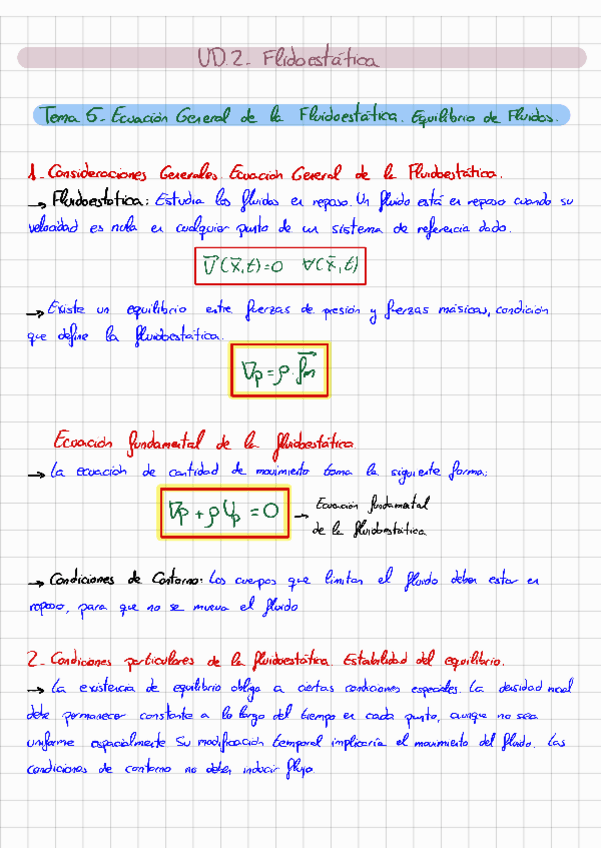 UD.2.- Flidoestática
Tema 5.- Ecuación General de la Fluidoestática. Equilibrio de Fluidos.
1.- Consideraciones Generales. Ecuación General de la Fluidoestática.
→ Fluidoestática: Estudia los fluidos en reposo. Un fluido está en reposo cuando su
velocidad es nula en cualquier punto de un sistema de referencia dado.
V⃗(x̄,t)=0 ∀(x̄,t)
→ Existe un equilibrio entre fuerzas de presión y fuerzas másicas, condición
que define la fluidoestática.
∇p = ρ·f⃗m
Ecuación fundamental de la fluidoestática
→ La ecuación de cantidad de movimiento toma la siguiente forma:
∇p + ρ = 0 → Ecuación fundamental
de la fluidoestática
→ Condiciones de Contorno: Los cuerpos que limitan el fluido deben estar en
reposo, para que no se mueva el fluido
2.- Condiciones particulares de la fluidoestática. Estabilidad del equilibrio.
→ La existencia de equilibrio obliga a ciertas condiciones especiales. La densidad
debe permanecer constante a lo largo del tiempo en cada punto, aunque no sea
uniforme espacialmente su modificación temporal implicaría el movimiento del fluido. Las
condiciones de contorno no deben inducir flujo.